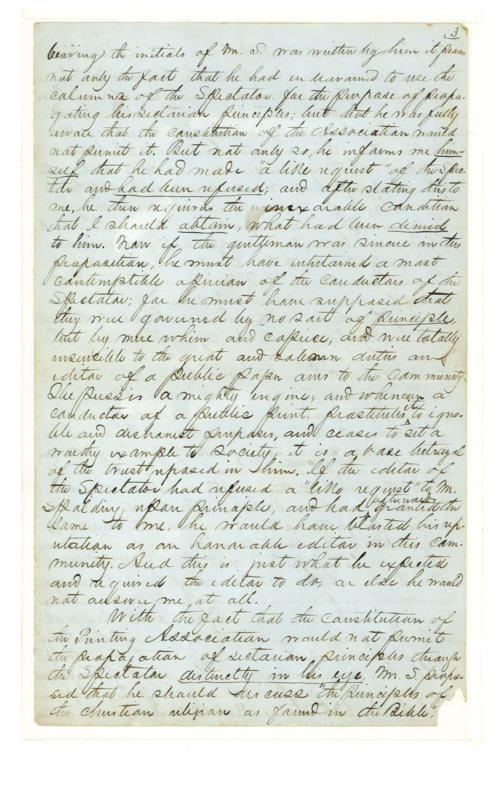 3
bearing the initials of Mr. S. was written by him it proves
not only the fact that he had endeavored to use the
columns of the Spectator for the purpose of propa-
gating his sectarian principles; but that he was fully
aware that the Constitution of the Association would
not permit it. But not only so, he informs me him-
self that he had made "a like request" of the Spec-
tator and had been refused; and after stating this to
me, he then requires the inexorable condition
that I should obtain, what had been denied
to him. Now if the gentleman was sincere in this
proposition, he must have entertained a most
contemptible opinion of the conductors of the
Spectator; for he must have supposed that
they were governed by no sort of principle,
but by mere whim and caprice, and were totally
insensible to the great and solemn duties an
editor of a public paper owes to the community.
The press is a mighty engine, and whenever a
conductor of a public print prostitutes it to igno-
ble and dishonest purposes, and ceases to set a
worthy example to society, it is a base betrayal
of the trust reposed in him. If the editor of
the Spectator had refused a "like request" to Mr.
Spalding, upon principle, and had afterwards granted the
same to me, he would have blasted his rep-
utation as an honorable editor in this com-
munity. And this is just what he expected
and required the editor to do, or else he would
not answer me at all.
With the fact that the Constitution of
the Printing Association would not permit
the propagation of sectarian principles through
the Spectator distinctly in his eye, Mr. S. propo-
sed that he should discuss "the principles of
the Christian religion as found in the Bible",